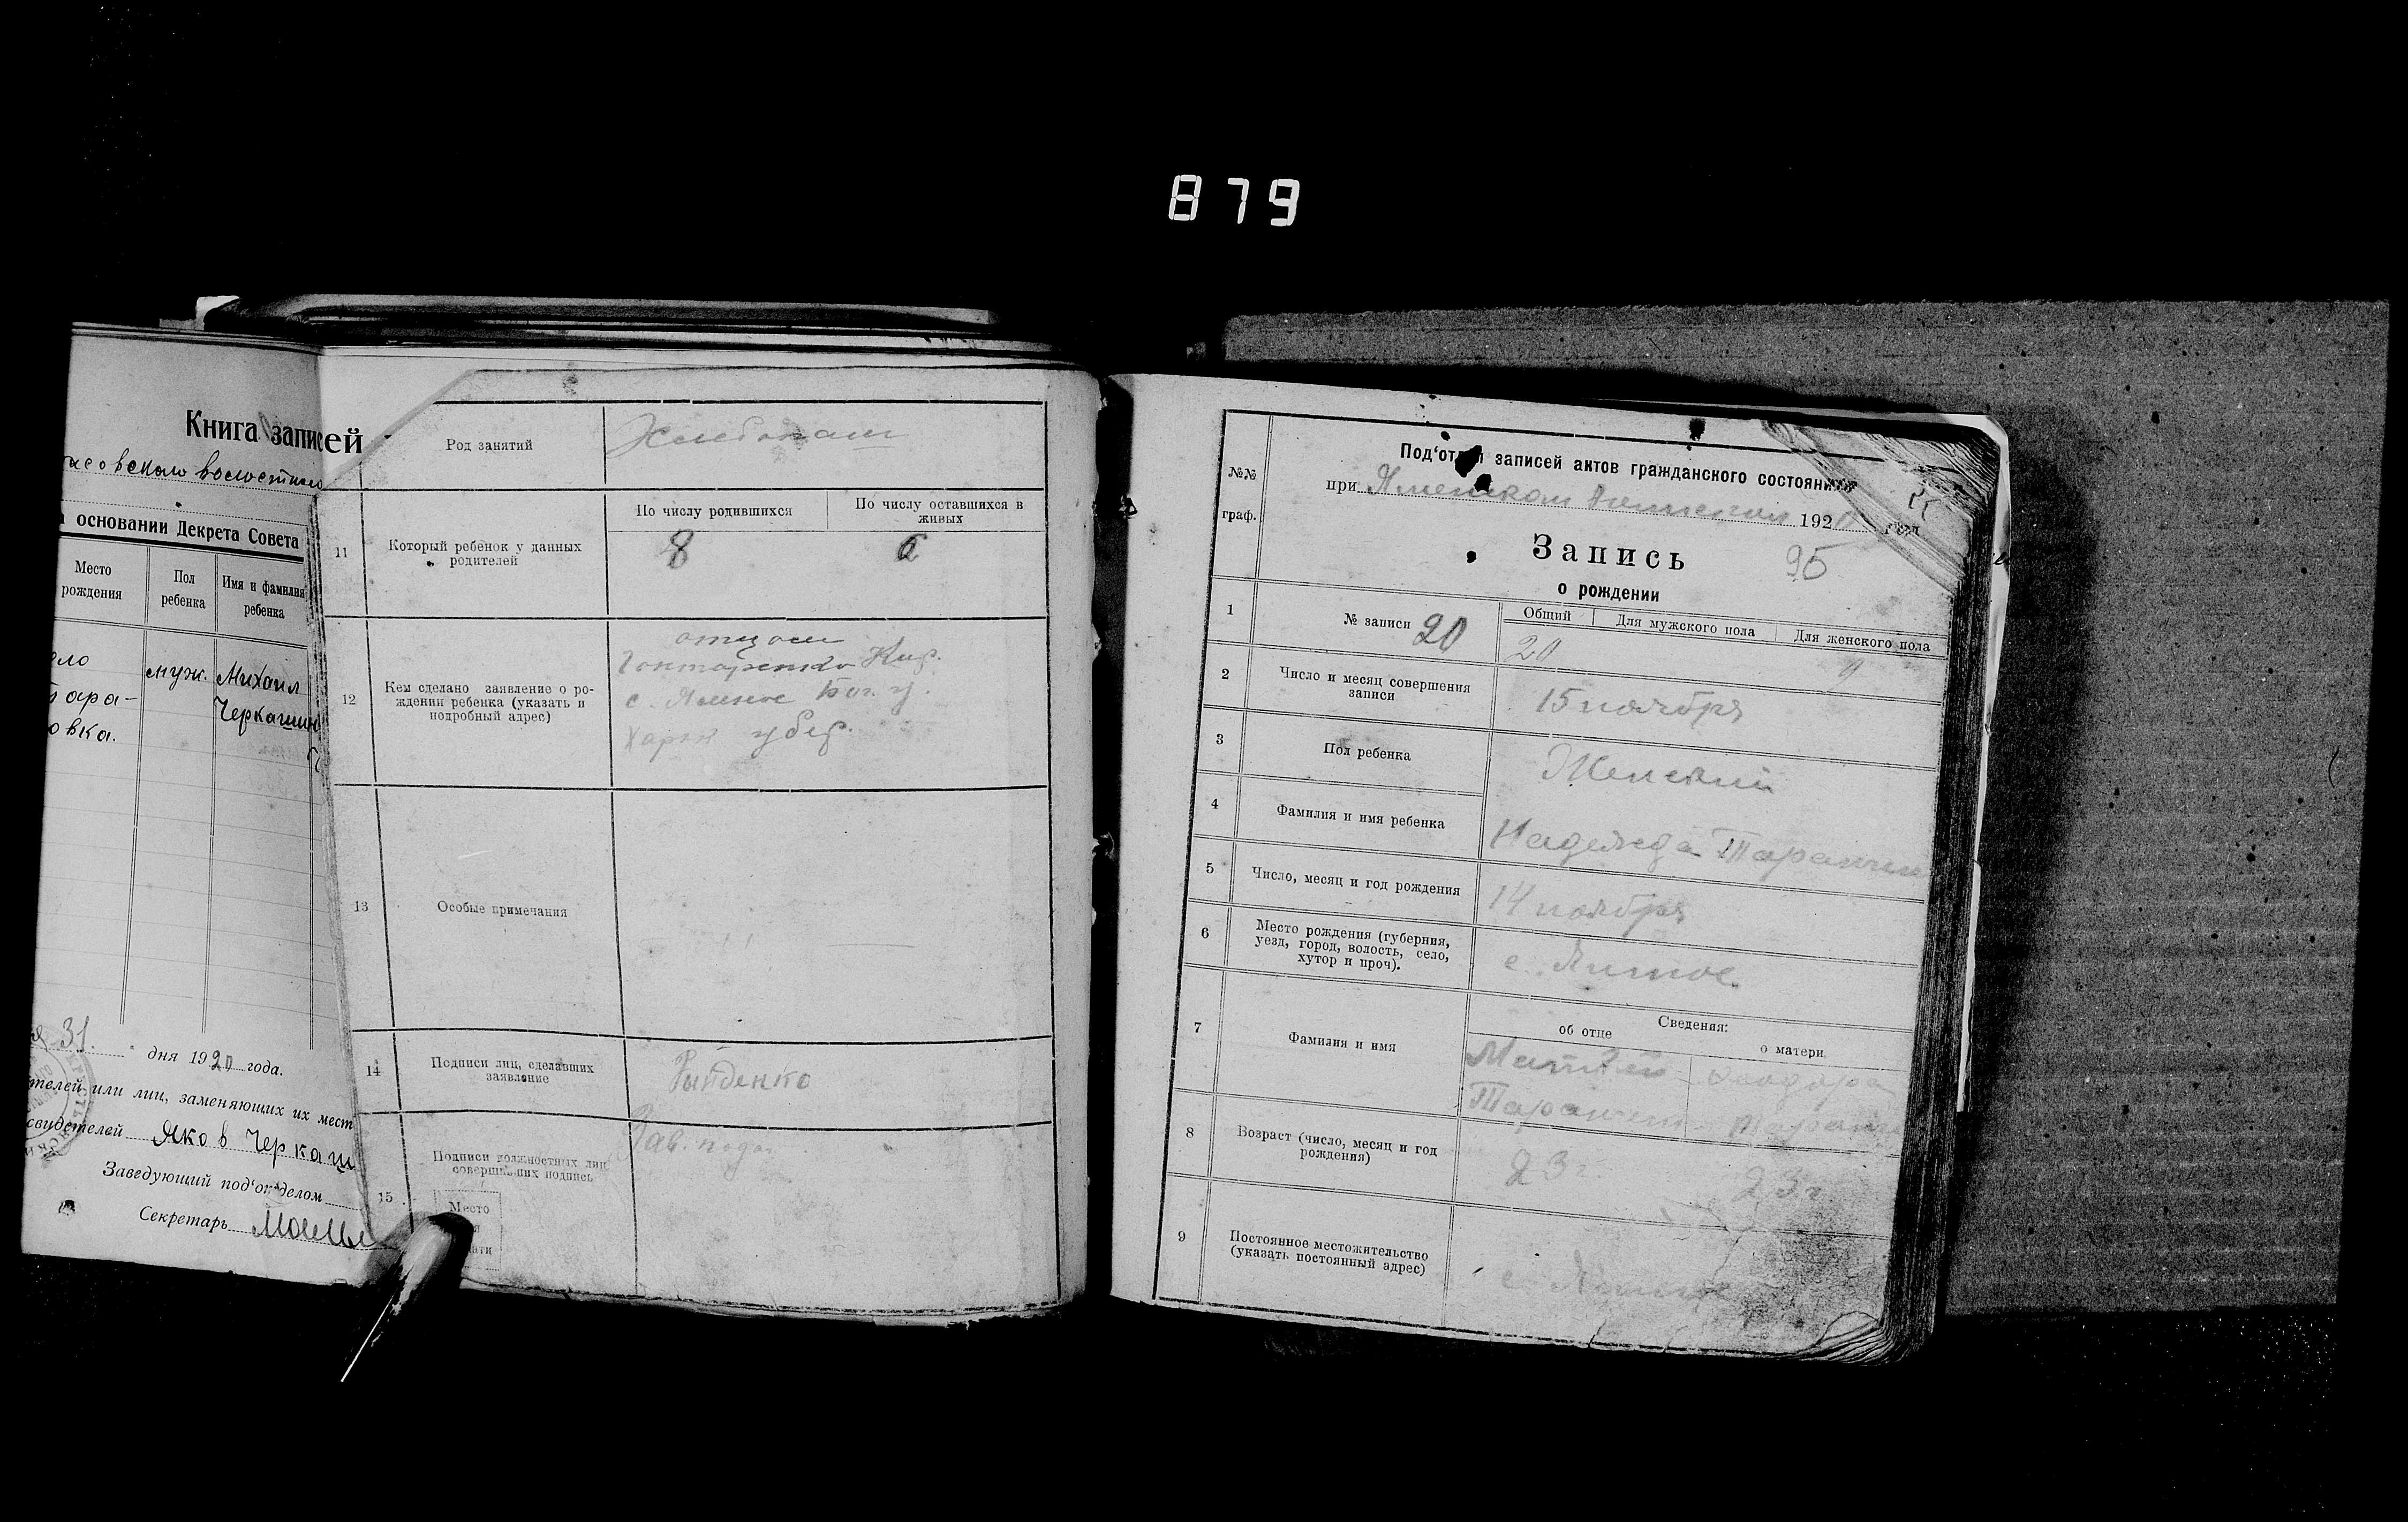 879
Книга записей
волостного
основании Декрета Совета
Место рождения
Пол ребенка
Имя и фамилия ребенка
муж.
Михаил
Черкашин
овка.
31.
дня 1920 года.
или лиц, заменяющих их мест
свидетелей Яков Черкаш
Заведующий под‘отделом
Секретарь
Род занятий
Хлебопаш
11
Который ребенок у данных родителей
По числу родившихся
По числу оставшихся в живых
8
6
12
Кем сделано заявление о рождении ребенка (указать и подробный адрес)
отцом
Гонтаренко Кир.
с. Ямное Бог. у.
Харьк губер.
13
Особые примечания
14
Подписи лиц, сделавших заявление
15
Подписи должностных лиц совершивших подпись
Зав. подот
Место
№№ граф.
Под‘отдел записей актов гражданского состояния
при 1920 год
Запись
95
о рождении
1
№ записи 20
Общий
Для мужского пола
Для женского пола
20
9
2
Число и месяц совершения записи
15 ноября
3
Пол ребенка
Женский
4
Фамилия и имя ребенка
Надежда
5
Число, месяц и год рождения
14 ноября
6
Место рождения (губерния, уезд, город, волость, село, хутор и проч).
с. Ямное
7
Фамилия и имя
Сведения:
об отце
о матери
8
Возраст (число, месяц и год рождения)
23 г.
23 г.
9
Постоянное местожительство (указать постоянный адрес)
с. Ямное